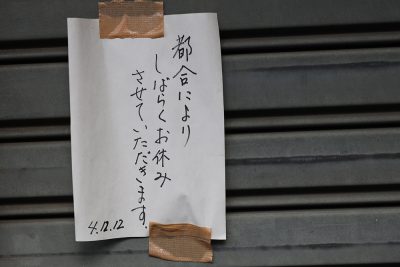 都合により
しばらくお休み
させていただきます.
4.12.12